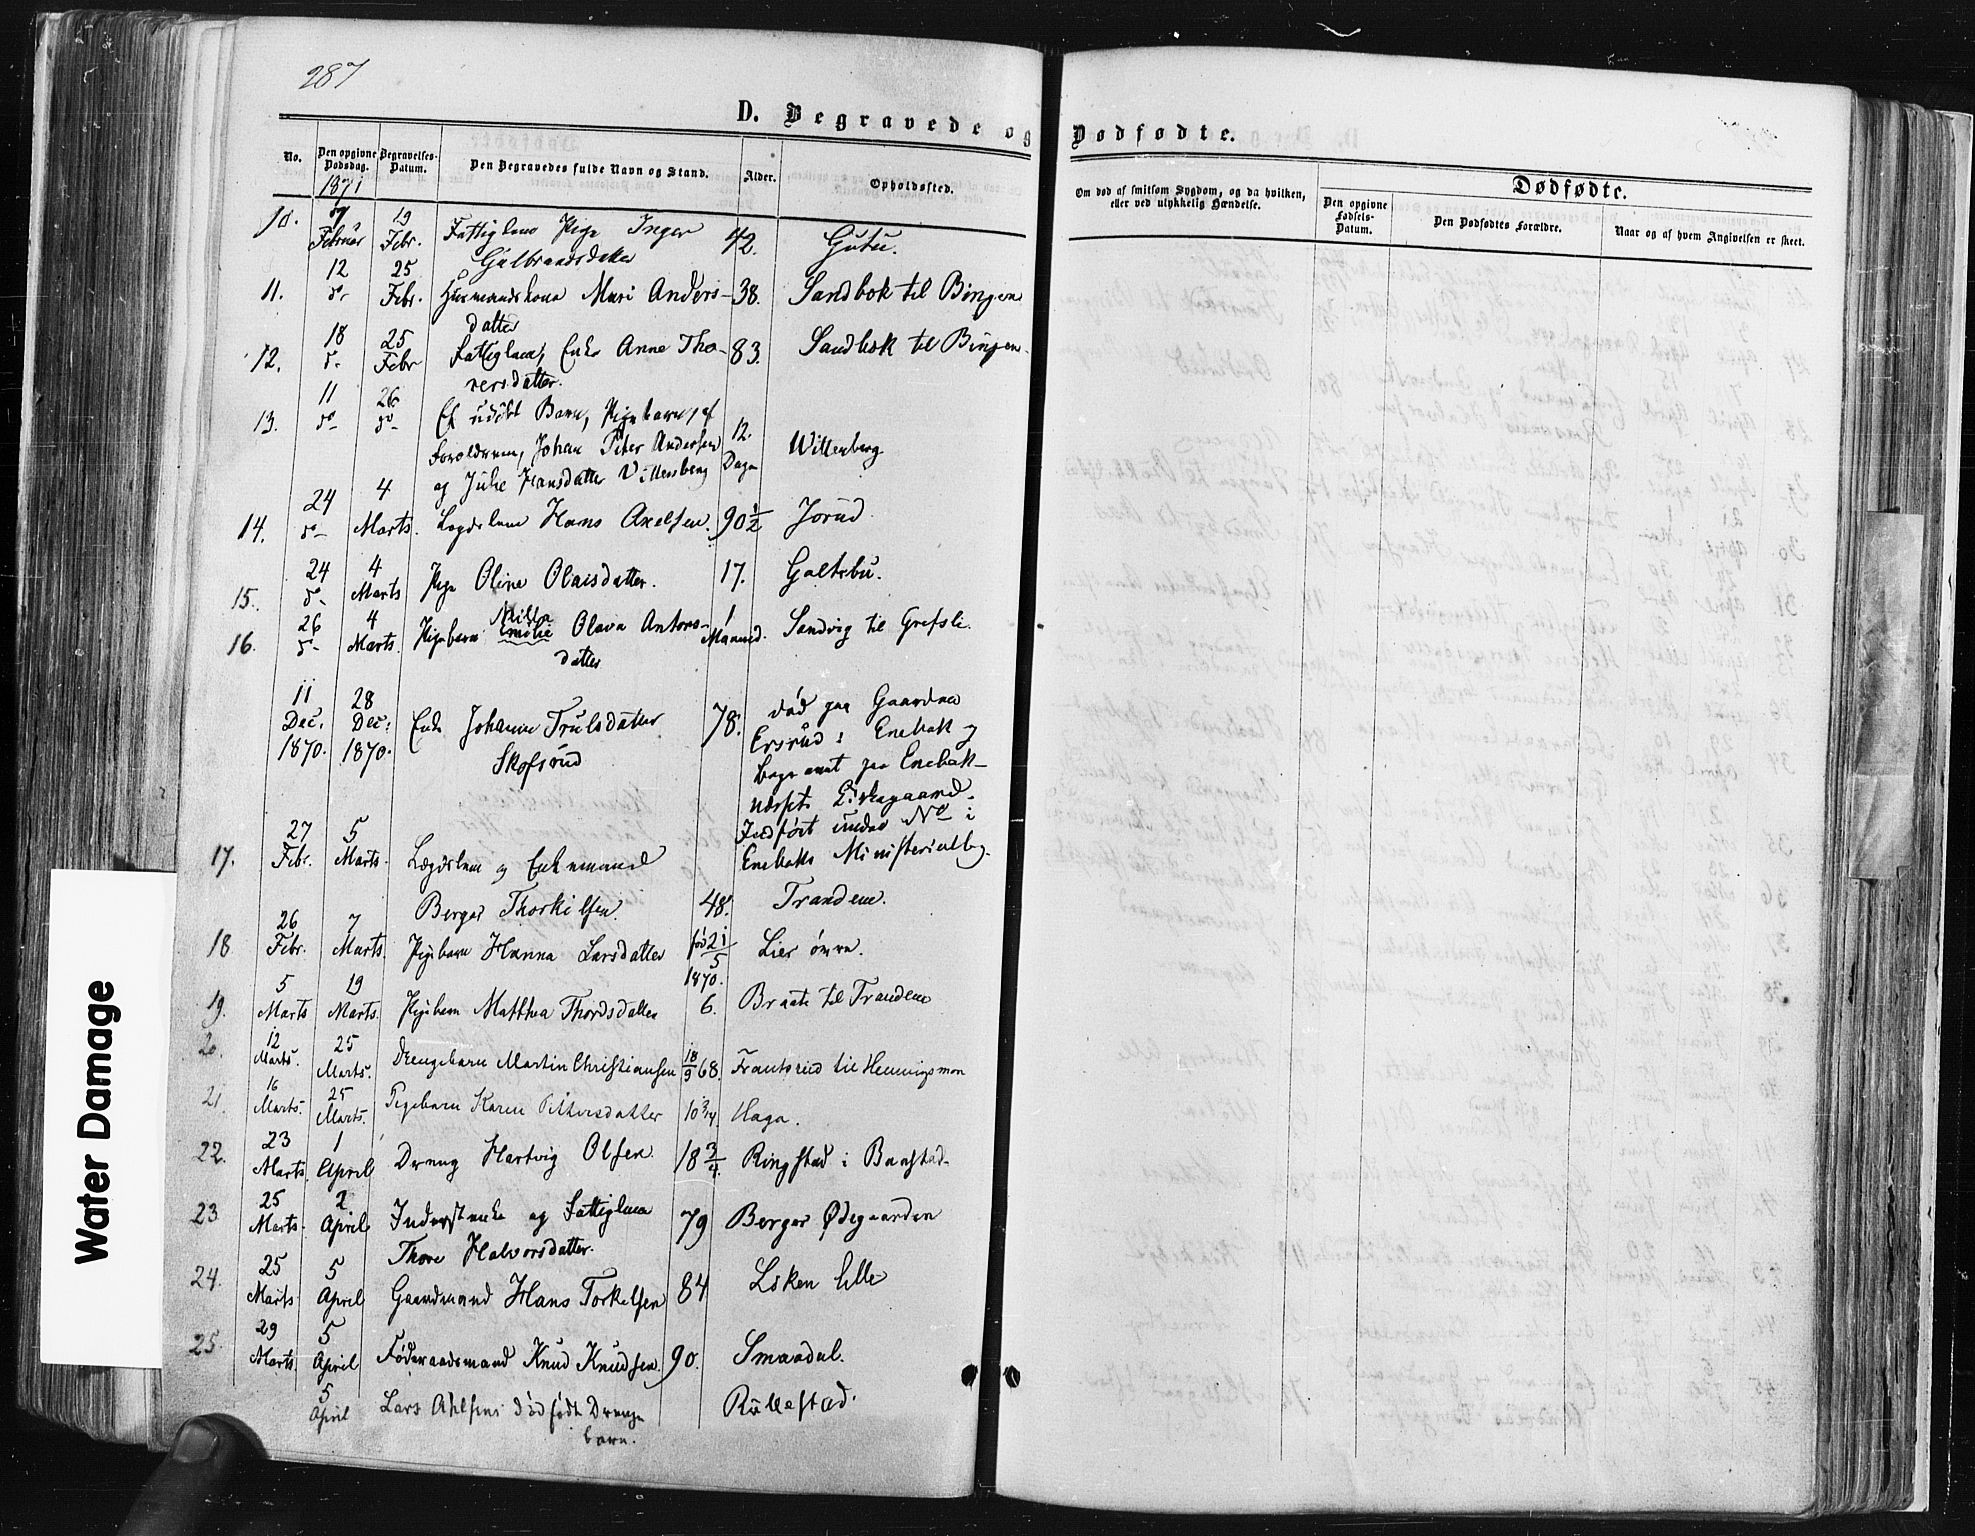 287
D. Begravede og Dødfødte.
No. Den opgivne Dødsdag. Begravelses-Datum. Den Begravedes fulde Navn og Stand. Alder. Opholdssted. Om død af smitsom Sygdom, og da hvilken, eller ved ulykkelig Hændelse. Dødfødte.
Den opgivne Fødsels-Datum. Den Dødfødtes Forældre. Naar og af hvem Angivelsen er skeet.
1871
10. 7 Februar 19 Febr. Fattiglem Pige Inger 42. Gutu.
Gulbrandsdatter
11. 12 do 25 Febr. Husmandskone Mari Anders- 38. Sandbok til Bingen
datter
12. 18 do 25 Febr Fattiglem, Enke Anne Tho- 83. Sandbok til Bingen
versdatter.
13. 11 do 26 do Et udöbt Barn, Pigebarn, af
Forældrene, Johan Peter Andersen 12. Willenberg
og Julie Hansdatter Villenberg Dage
14. 24 do 4 Marts. Lægdslem Hans Axelsen. 90 1/2 Jorud.
15. 24 do 4 Marts Pige Oline Olaisdatter. 17. Galtebu.
16. 26 do 4 Marts. Pigebarn Milla Emilie Olava Antons- 1 Maaned. Sandvig til Grefsli.
datter
11 Dec: 1870. 28 Dec: 1870. Enke Johanne Trulsdatter 78. död paa Gaarden
Skofsrud Ersrud i Enebak og
begravet paa Enebak-
næssets Kirkegaard.
Indført under No i
Enebaks Ministerialbog.
17. 27 Febr. 5 Marts. Lægdslem og Enkemand
Berger Thorkilsen. 48. Tranden.
18 26 Febr. 7 Marts. Pigebarn Hanna Larsdatter fød 21/5 1870. Lier övre.
19. 5 Marts 19 Marts. Pigebarn Matthea Thordsdatter 6. Braate til Tranden
20. 12 Marts. 25 Marts. Drengebarn Martin Christiansen 18/9 68. Frantsrud til Hemmingsmon
21. 16 Marts. 25 Marts. Pigebarn Karen Pettersdatter 10 3/4. Haga.
22. 23 Marts 1 April Dreng Hartvig Olsen. 18 3/4. Ringstad i Baastad
23 25 Marts. 2 April Inderstenke og Fattiglem 79 Berger Ødegaarden
Thore Halvorsdatter.
24. 25 Marts 5 April Gaardmand Hans Torkelsen 84 Löken lille
25. 29 Marts. 5 April Föderaadsmand Knud Knudsen. 90. Smaadal.
5 April Lars dödfödte Drenge Rullestad.
barn.
Water Damage